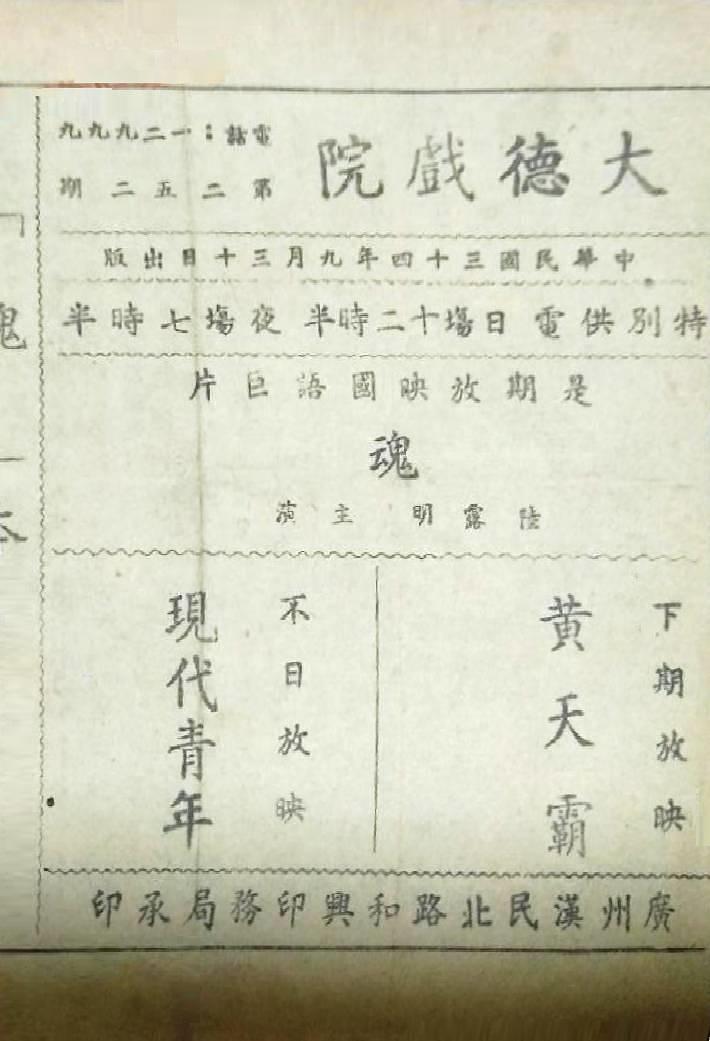 大德戲院
電話：一二九九九
第二五二期
中華民國三十四年九月三十日出版
特別供電 日塲十二時半 夜塲七時半
是期放映國語巨片
魂
陸露明 主演
下期放映
黃天霸
不日放映
現代青年
廣州漢民北路和興印務局承印
魂